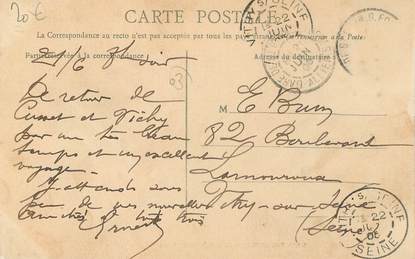 20€
CARTE POSTALE
La Correspondance au recto n'est pas acceptée par tous les pays étrangers à la Poste
Partie réservée à la correspondance
Adresse du destinataire
93
De retour de
Cusset et Vichy
par un très beau
temps et un excellent
voyage.
J'attends sous
peu de vos nouvelles
Ernest
M E
82 Boulevard
Lamouroux
Vitry-sur-Seine
Seine
VITRY-S-SEINE
22
JUIN
VITRY-S-SEINE
22
SEINE